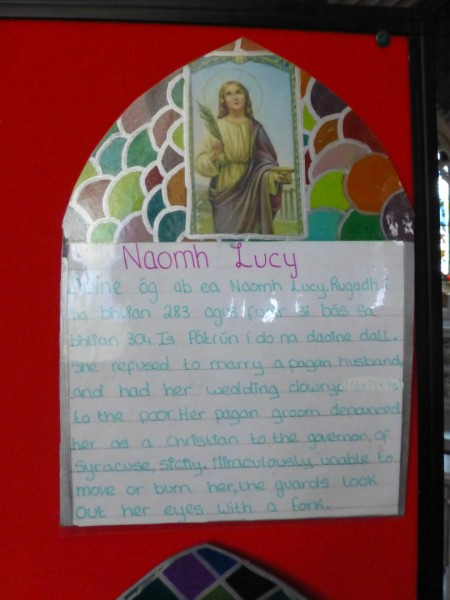 Naomh Lucy
óg ab ea Naomh Lucy. Rugadh í
sa bhlian 283 agus fuair sí bás sa
bhlian 304. Is Pátrún í do na daoine dall.
She refused to marry a pagan husband
and had her wedding dowry
to the poor. Her pagan groom denounced
her as a Christian to the governor, of
Syracuse, Sicily. Miraculously unable to
move or burn her, the guards took
out her eyes with a fork.